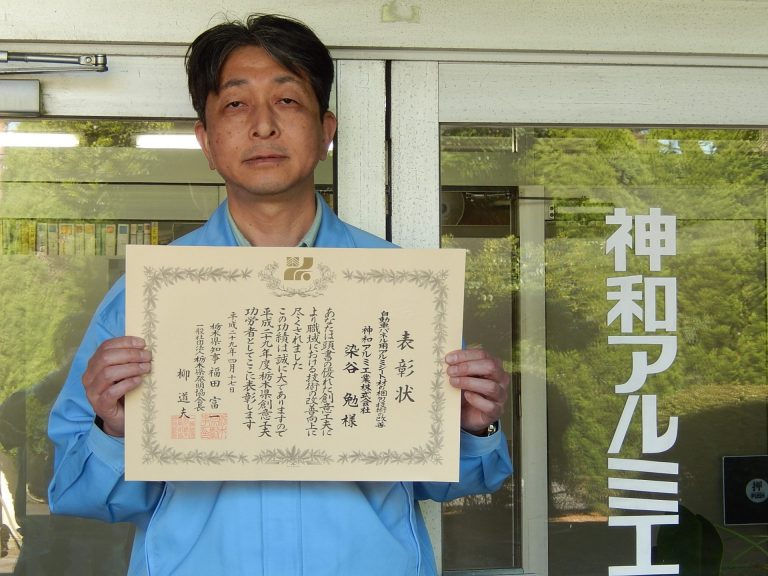 表彰状
自動車パネル用アルミシート材の梱包技術の改善
神和アルミ工業株式会社
染谷 勉 様
あなたは頭書の優れた創意工夫に
より職域における技術の改善向上に
尽くされました
この功績は誠に大でありますので
平成二十九年度栃木県創意工夫
功労者としてここに表彰します
平成二十九年四月十七日
栃木県知事 福田 富一
一般社団法人 栃木県発明協会会長
柳 道夫
神和アルミエ
押